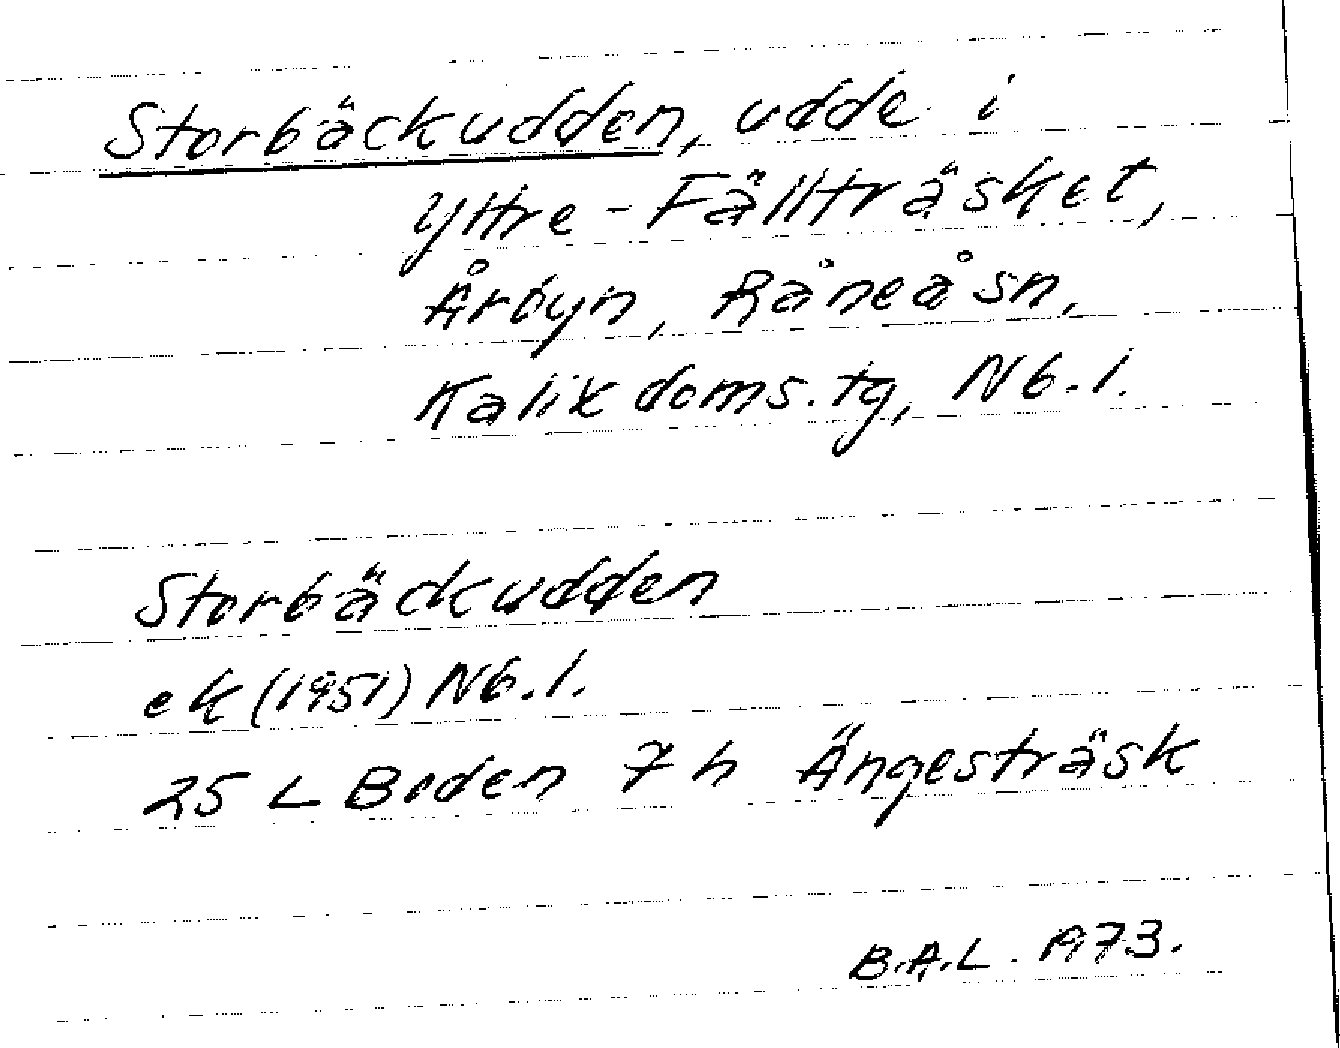 Storbäckudden, udde i
Yttre-Fällträsket,
Årbyn, Råneå sn,
Kalix doms.tg, Nb.l.
Storbäckudden
ek (1951) Nb.l.
25 L Boden 7 h Ängesträsk
B.A.L. A73.